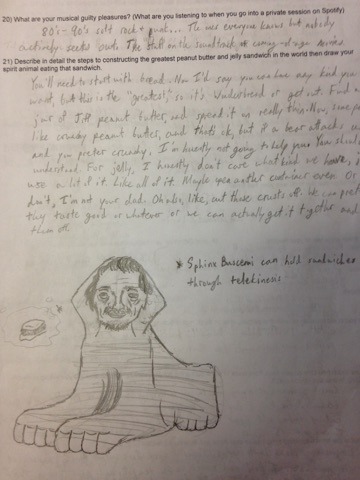 20) What are your musical guilty pleasures? (What are you listening to when you go into a private session on Spotify)
80's-90's soft rock + punk... The ones everyone knows but nobody
actively seeks out. The stuff on the soundtrack of coming-of-age movies
21) Describe in detail the steps to constructing the greatest peanut butter and jelly sandwich in the world then draw your
spirit animal eating that sandwich.
You'll need to start with bread. Now I'd say you can have any kind you
want, but this is the "greatest," so it's Wonderbread or get out. Find a
jar of Jiff peanut butter, and spread it on really thin. Now, some
like crunchy peanut butter, and that's ok, but if a bear attacks
and you prefer crunchy, I'm honestly not going to help you. You should
understand. For jelly, I honestly don't care what kind we have,
use a lot of it. Like all of it. Maybe open another container even. Or
don't, I'm not your dad. Oh also, like, cut those crusts off. We can
they taste good or whatever or we can actually get it together and
them off.
* Sphinx Buscemi can hold sandwiches
through telekinesis